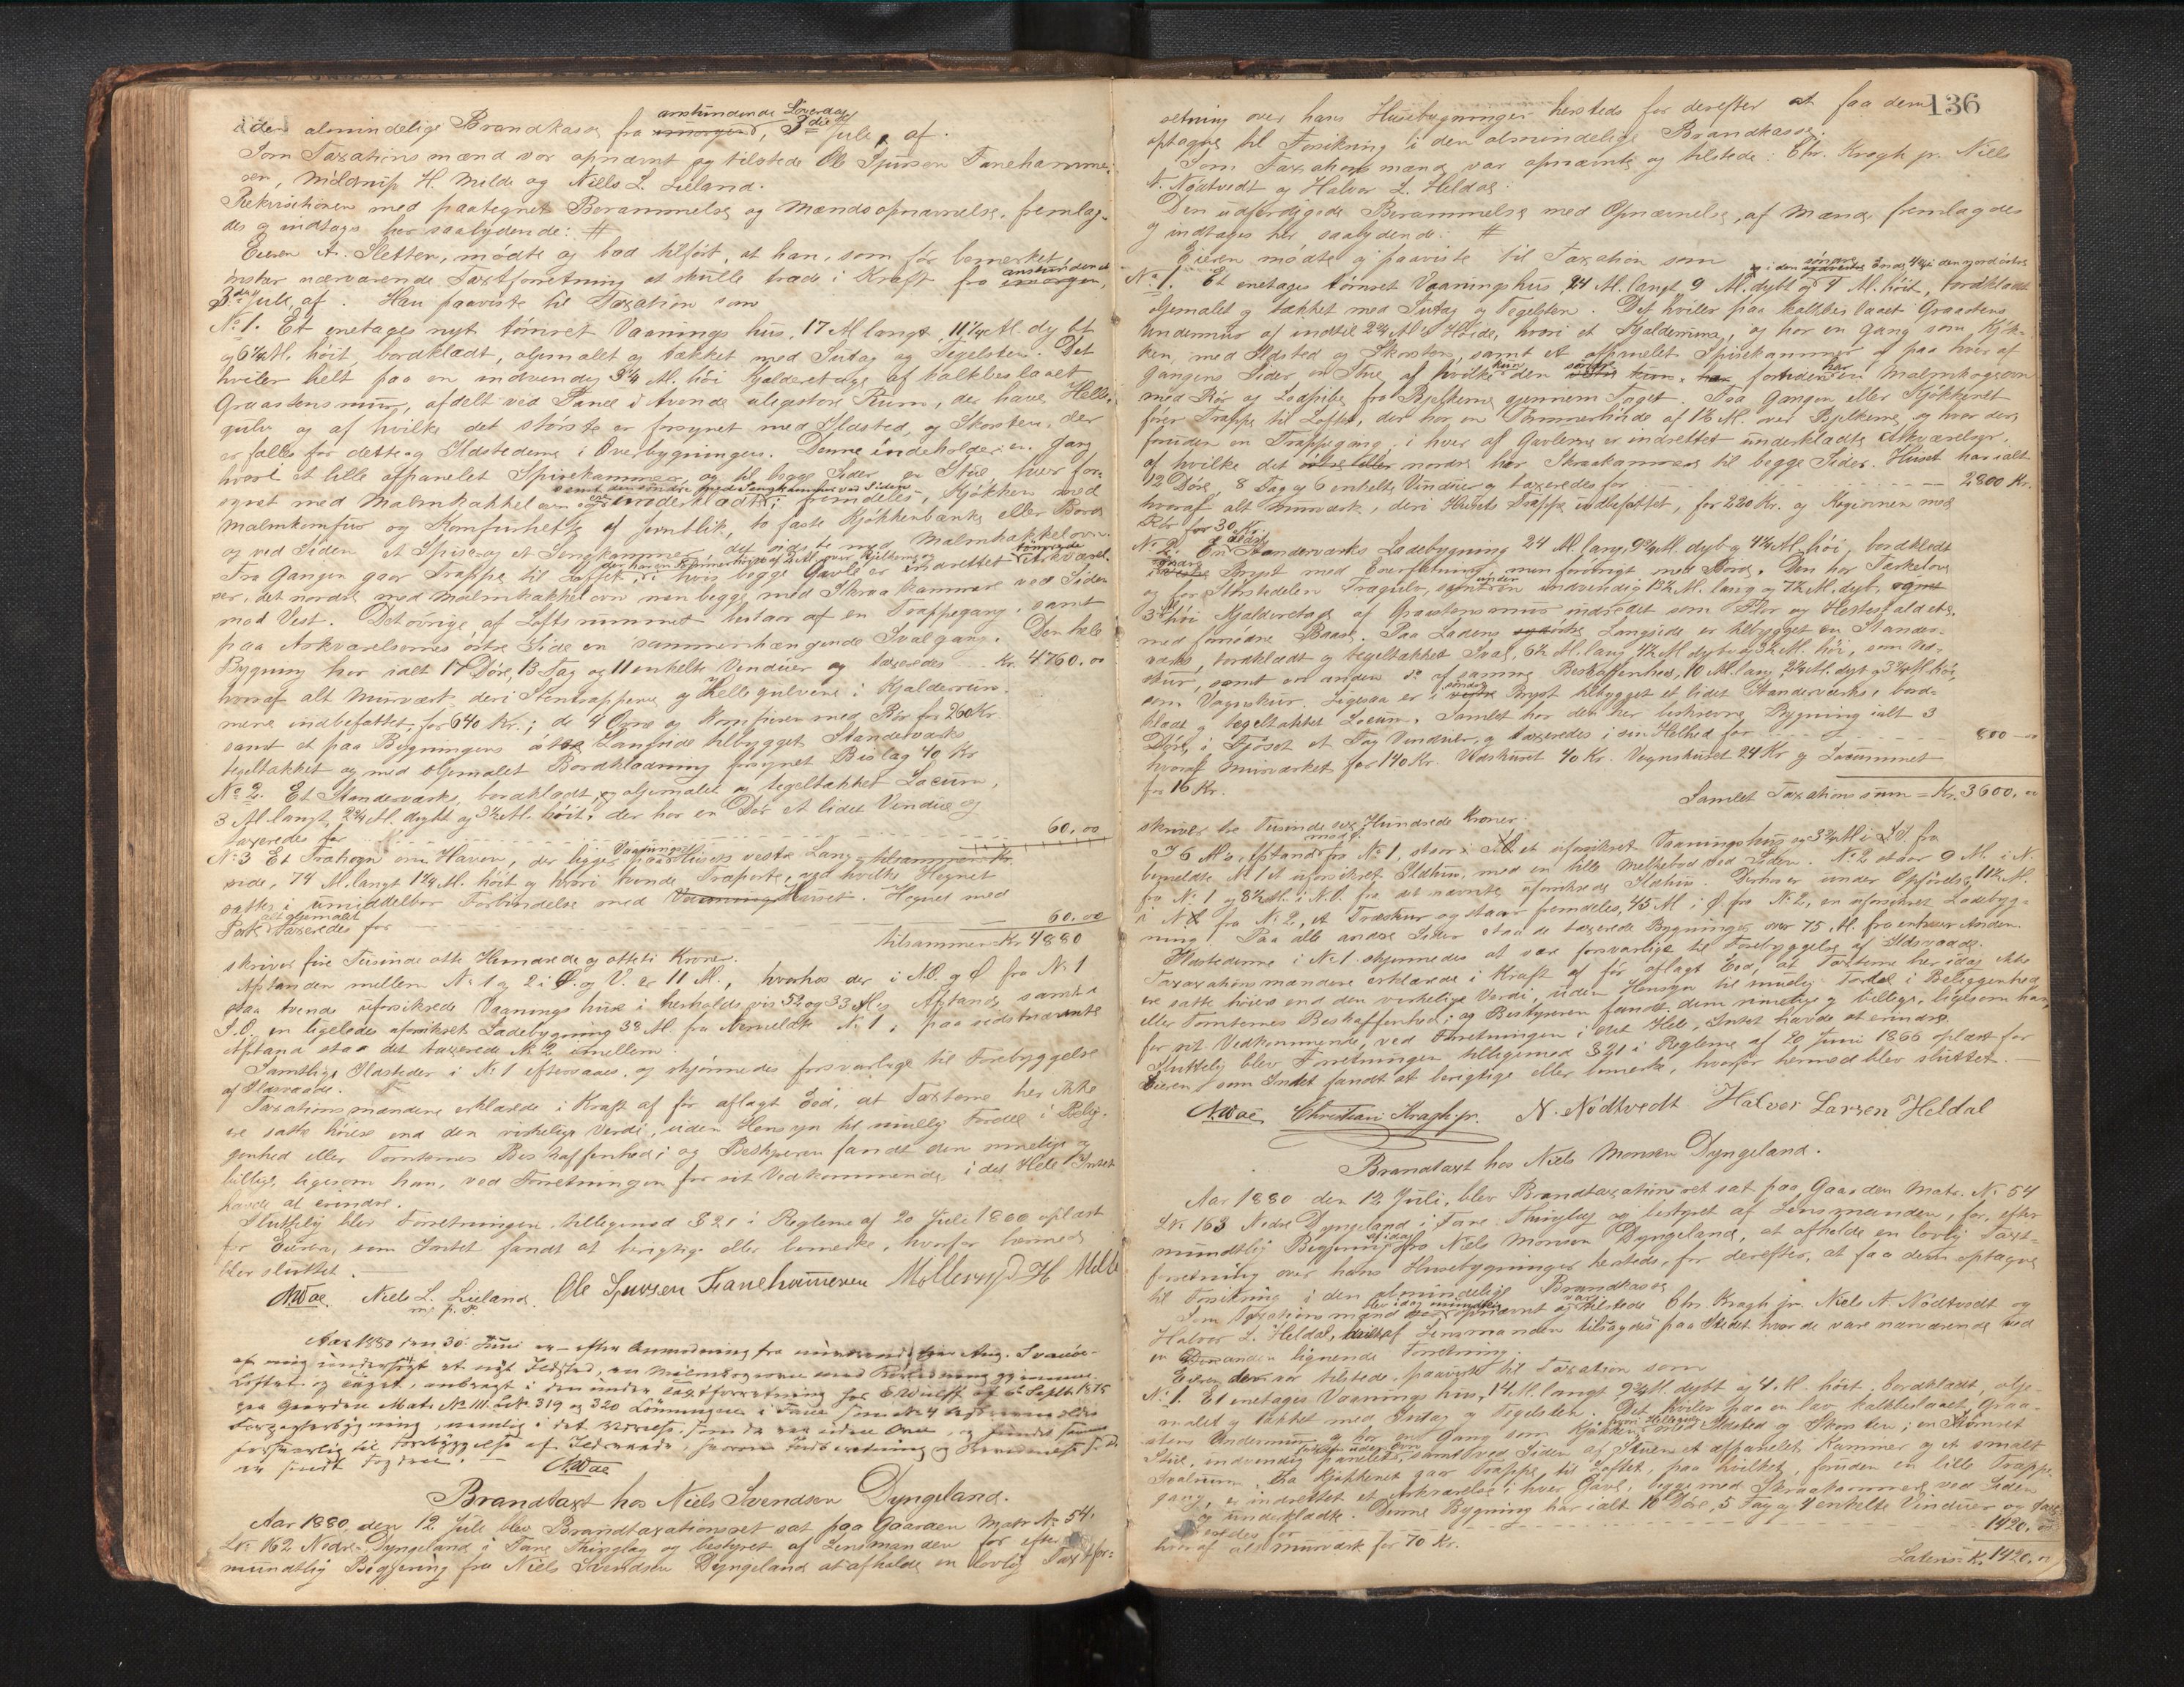 i den almindelige Brandkasse fra anstundende Löverdag 3die Juli, af.
Som Taxationsmænd var opnævnt og tilstede Ole Spursen Fanehammer-
en, Möldrup H. Milde og Niels L. Lieland.
Rekvisitionen med paategnet Berammelse og Mændsopnævnelse, fremlag-
des og indtages her saalydende: #
Eieren A. Sletten, mödte og bad tilfört, at han, som för bemerket,
önskar nærværende Taxtforretning at skulle træde i Kraft fra anstundende
3die Juli, af. Han paaviste til Taxation som
No 1. Et enetages nyt tömret Vaaningshus, 17 Al. langt, 11 1/4 Al. dybt
og 6 1/4 Al. höit, bordklædt, oljemalet og tækket med Sutag og Tegelsten. Det
hviler helt paa en indvendig 3 1/4 Al. höi Kjelderetage af kalkbeslaaet
Graastensmur, afdelt ved Panel i tvende uligestore Rum, der have Helle-
gulv og af hvilke det störste er forsynet med Ildsted, og Skorsten, der
er fælles for dette og Ildstederne i Overbygningen. Denne indeholder en Gang
hvori et lille afpanelet Spisekammer, og til begge Sider en Stue hver for-
synet med Malmkakkelovn samt den söndre med Sengkammer ved Siden og underklædt; fremdeles, Kjökken med
Malmkomfur og Komfurhætte af Jernblik, to faste Kjökkenbænke eller Borde
og ved Siden et Spise- og et Sengkammer, det sidste med Malmkakkelovn.
Fra Gangen gaar Trappe til Loftet, der har en Tömmerhöide af 2 Al. over Bjelkerne og i hvis begge Gavle er indrettet tömrede Arkværel-
ser, det nordre med Malmkakkelovn men begge med Skraakammere ved Siden
mod Vest. Det övrige af Loftsrummet bestaar af en Trappegang, samt
paa Arkværelsernes östre Side en sammenhængende Svalgang. Den hele
Bygning har ialt 17 Döre, 13 Fag og 11 enkelte Vinduer og taxeredes .. Kr. 4760.00
hvoraf alt Murværk, deri Stentrapperne og Hellegulvene i Kjelderrum-
mene indbefattet, for 640 Kr.; de 4 Ovne og Komfuren med Rör for 260 Kr
samt et paa Bygningens östre Langside tilbygget Standerværks
tegeltækket og med oljemalet Bordklædning forsynet Bislag 40 Kr
No 2. Et Standerværks, bordklædt og oljemalet og tegeltækket Locum,
3 Al. langt, 2 3/4 Al. dybt og 3 1/2 Al. höit, der har en Dör et lidet Vindue og
taxeredes for 60.00
No 3 Et Træhegn om Haven, der ligger paa Vaaningshusets vestre Lang-
side, 74 Al. langt 1 3/4 Al. höit og hvori tvende Træporte, ved hvilke Hegnet
sættes i umiddelbar Forbindelse med Huset. Hegnet med
Port alt oljemalet taxeredes for 60.00
tilsammen Kr 4880
skriver fire Tusinde otte Hundrede og otteti Kroner.
Afstanden mellem No 1 og 2 i Ö. og V. er 11 Al., hvorhos der i NO. og Ö fra No 1
staa tvende uforsikrede Vaaningshuse i henholdsvis 52 og 33 Al.s Afstand samt i
S.O. en ligeledes uforsikret Ladebygning 38 Al. fra Nemeldte No 1, paa sidstnævnte
Afstand staa det taxerede No 2 imellem.
Samtlige Ildsteder i No 1 eftersaaes, og skjönnedes forsvarlige til Forebyggelse
af Ildsvaade.
Taxationsmændene erklærede i Kraft af för aflagt Eed, at Taxterne her ikke
ere satte höiere end den virkelige Verdi, uden Hensyn til muelig Fordel i Belig-
genhed eller Tomternes Beskaffenhed; og Bestyreren fandt dem rimelige og
billige, ligesom han, ved Forretningen for sit Vedkommende, i det Hele Intet
havde at erindre.
Sluttelig blev Forretningen tillegemed § 21 i Reglerne af 20 Juli 1866 oplæst
for Eieren, som Intet fandt at berigtige eller bemerke, hvorfor hermed
blev sluttet.
NWae. Niels L. Lieland m. p. P. Ole Spursen Fanehammeren Möllerup H Milde
Aar 1880 den 30 Juni er efter Anmodning fra
af mig undersögt et nyt Ildsted, en med Rörledning gjennem
Loftet og taget, anbragt i den under Taxtforretning hos E. Wulff af 6 Septb 1875
paa Gaarden Matr. No 111. L.No. 319 og 320 Lönningen i Fane som No 4
nemlig i det
forsvarlig til Forebyggelse af Ildsvaade,
NWae
Brandtaxt hos Niels Svendsen Dyngeland.
Aar 1880 den 12 Juli blev Brandtaxationsret sat paa Gaarden Matr No 54,
L.No 162 Nedre Dyngeland i Fane Thinglag og bestyret af Lensmanden for efter
mundtlig Begjering fra Niels Svendsen Dyngeland at afholde en lovlig Taxtfor-
136
retning over hans Husebygninger hersteds for derefter at faa dem
optagne til Forsikring i den almindelige Brandkasse.
Som Taxationsmænd var opnævnte og tilstede: Chr. Kragh jr. Niels
N. Nödtvedt og Halvor L. Heldal.
Den udfærdigede Berammelse med Opnævnelse af Mænd fremlagdes
og indtages her saalydende: #
Eieren mödte og paaviste til Taxation som
No 1. Et enetages tömret Vaaningshus, 24 Al. langt 9 Al. dybt og i den söndre Ende 4 og i den nordöstre 4 Al. höit, bordklædt
oljemalet og tækket med Sutag og Tegelsten. Det hviler paa kalkbeslaaet Graastens
Undermur af indtil 2 3/4 Al.s Höide, hvori et Kjelderrum, og har en Gang som Kjök-
ken, med Ildsted og Skorsten, samt et afpanelet Spisekammer og paa hver af
Gangens Sider en Stue, af hvilke kun den söndre foruden har en Malmkogeovn
med Rör og Lodpibe fra Bjelkerne gjennem Taget. Fra Gangen eller Kjökkenet
förer Trappe til Loftet, der har en Tömmerhöide af 1 1/2 Al. over Bjelkerne, og hvor der
foruden en Trappegang, i hver af Gavlerne er indrettet underklædte Arkværelser,
af hvilke det nordre har Skraakammere til begge Sider. Huset har ialt
12 Döre, 8 Fag og 6 enkelte Vinduer og taxeredes for 2800 Kr.
hvoraf alt Murværk, deri Husets Trappe indbefattet, for 220 Kr. og Kogeovnen med
Rör for 30 Kr.
No 2. En ældre Standerværks Ladebygning 24 Al. lang, 9 3/4 Al. dyb og 4 1/4 Al. höi, bordklædt
Bryst med Everfletning men forövrigt med Bord. Den har Tærskelove
og for Störstedelen Trægulv, samt under en indvendig 13 1/2 Al. lang og 7 1/2 Al. dyb,
3 Al höi Kjælderetage af Graastensmur indredet som Flor og Hestestald etc.
med fornödne Baase. Paa Ladens Langside er tilbygget en Stander-
værks, bordklædt og tegeltækket Sval, 6 1/2 Al. lang 4 1/2 Al. dyb og 3 1/2 Al. höi, som Ved-
skur, samt en anden do af samme Beskaffenhed, 10 Al. lang, 2 3/4 Al. dyb og 3 3/4 Al. höi,
som Vognskur. Ligesaa er i söndre Bryst tilbygget et lidet Standerværks, bord-
klædt og tegeltækket Locum. Samlet har den her beskrevne Bygning ialt 3
Döre, i Fjöset et Fag Vinduer, og taxeredes i sin Helhed for 800 -
hvoraf Murværket for 140 Kr. Vedskuret 40 Kr. Vognskuret 24 Kr og Locummet
for 16 Kr.
Samlet Taxationssum = Kr. 3600.00
skriver tre Tusinde sex Hundrede Kroner.
I 6 Al.s Afstand fra No 1, staar et uforsikret Vaaningshus og 3 3/4 Al i SV fra
bemeldte No 1 et uforsikret Ildhus, med en lille Melkebod ved Siden. No 2 staar 9 Al. i N.
fra No 1 og 8 1/2 Al. i N.O. fra det nævnte uforsikrede Ildhus. Derhos er under Opförelse, 11 1/2 Al.
i N. fra No 2, et Træskur og staar fremdeles, 45 Al i Ö. fra No 2, en uforsikret Ladebyg-
ning. Paa alle andre Sider staa de taxerede Bygninger over 75 Al. fra enhver Anden.
Ildstederne i No 1 skjönnedes at være forsvarlige til Forebyggelse af Ildsvaade.
Taxationsmændene erklærede i Kraft af för aflagt Eed, at Taxterne her idag ikke
ere satte höiere end den virkelige Verdi, uden Hensyn til muelig Fordel i Beliggenhed
eller Tomternes Beskaffenhed; og Bestyreren fandt dem rimelige og billige, ligesom han,
for sit Vedkommende, ved Forretningen i det Hele, Intet havde at erindre.
Sluttelig blev Forretningen tilligemed § 21 i Reglerne af 20 Juni 1866 oplæst for
Eieren, som Intet fandt at berigtige eller bemerke, hvorfor hermed blev sluttet.
NWae Christian Kragh jr. N. Nödtvedt Halvor Larsen Heldal
Brandtaxt hos Niels Monsen Dyngeland.
Aar 1880 den 12 Juli, blev Brandtaxationsret sat paa Gaarden Matr. No 54
L.No 163 Nedre Dyngeland i Fane Thinglag og bestyret af Lensmanden, for, efter
mundtlig Begjering af idag fra Niels Monsen Dyngeland, at afholde en lovlig Taxt-
forretning over hans Husebygninger hersteds, for derefter, at faa dem optagne
til Forsikring i den almindelige Brandkasse
Som Taxationsmænd blev idag mundtlig opnævnt og var tilstede Chr. Kragh jr. Niels N. Nödtvedt og
Halvor L. Heldal, af Lensmanden tilsagdes paa Stedet hvor de vare nærværende ved
en anden lignende Forretning.
Eieren der var tilstede, paaviste til Taxation som
No 1. Et enetages Vaaningshus, 14 Al. langt 9 3/4 Al. dybt og 4 Al. höit, bordklædt, olje-
malet og tækket med Sutag og Tegelsten. Det hviler paa en lav kalkbeslaaet, Graa-
stens Undermur, og har en Gang som Kjökken, med Ildsted og Skorsten; en tömret
Stue, indvendig panelet, samt ved Siden af Stuen et afpanelet Kammer og et smalt
Svalrum. Fra Kjökkenet gaar Trappe til Loftet, paa hvilket, foruden en lille Trappe-
gang, er indrettet et Arkværelse i hver Gavl, begge med Skraakammere ved Siden
og underklædte. Denne Bygning har ialt 10 Döre, 5 Fag og 4 enkelte Vinduer og taxe-
redes for 1420.00
hvoraf alt Murværk for 70 Kr.
Lateris: Kr. 1420.00